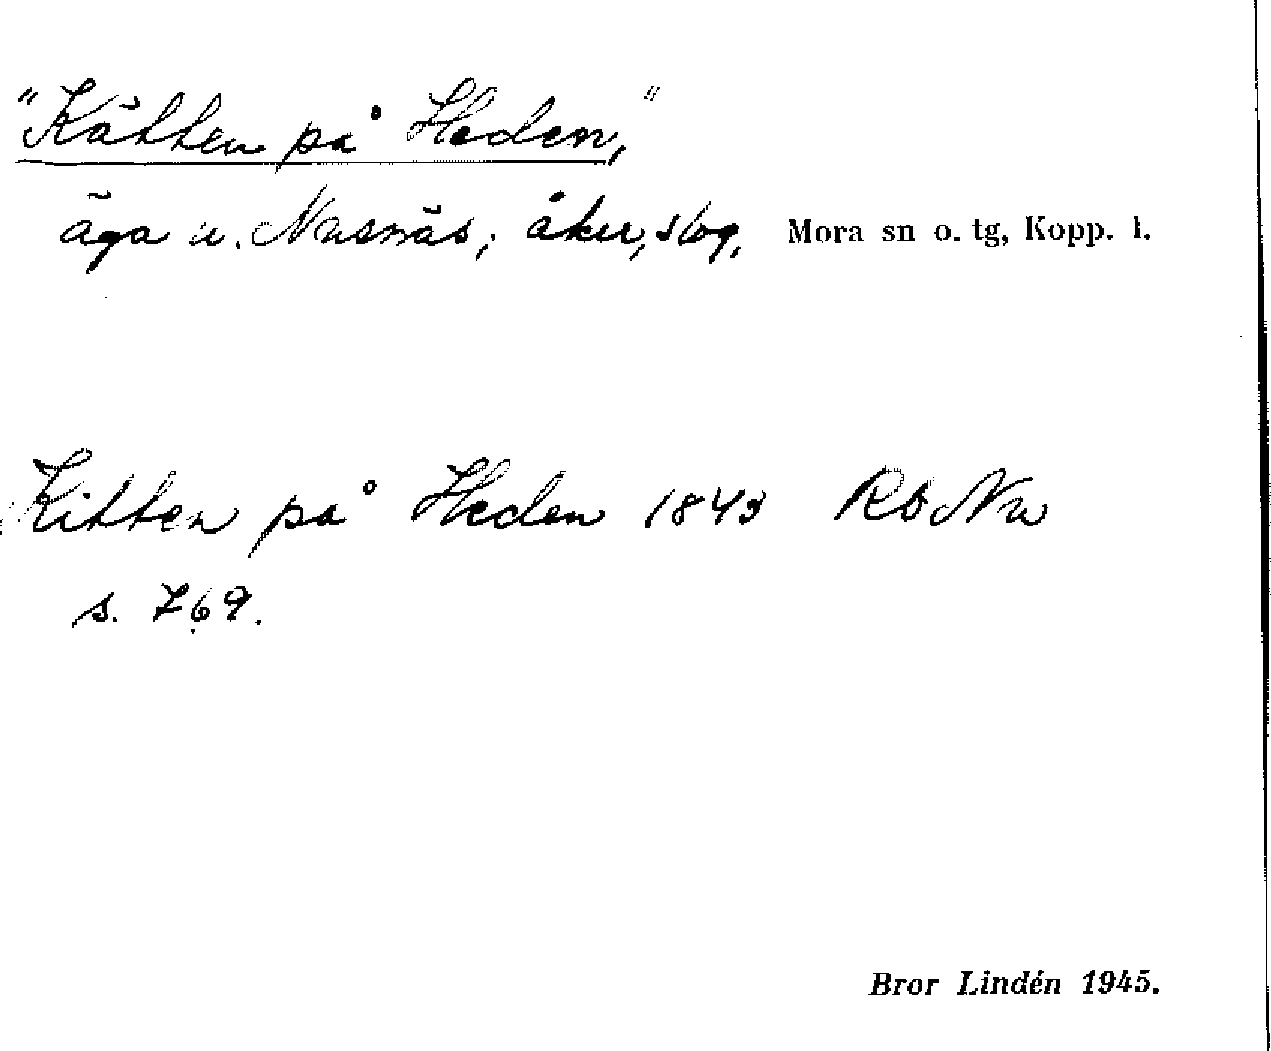 "Kätten på Heden,"
äga u. Nusnäs; åker, slog, Mora sn o. tg, Kopp. l.
Kitten på Heden 1843 Rb Nu
s. 769.
Bror Lindén 1945.